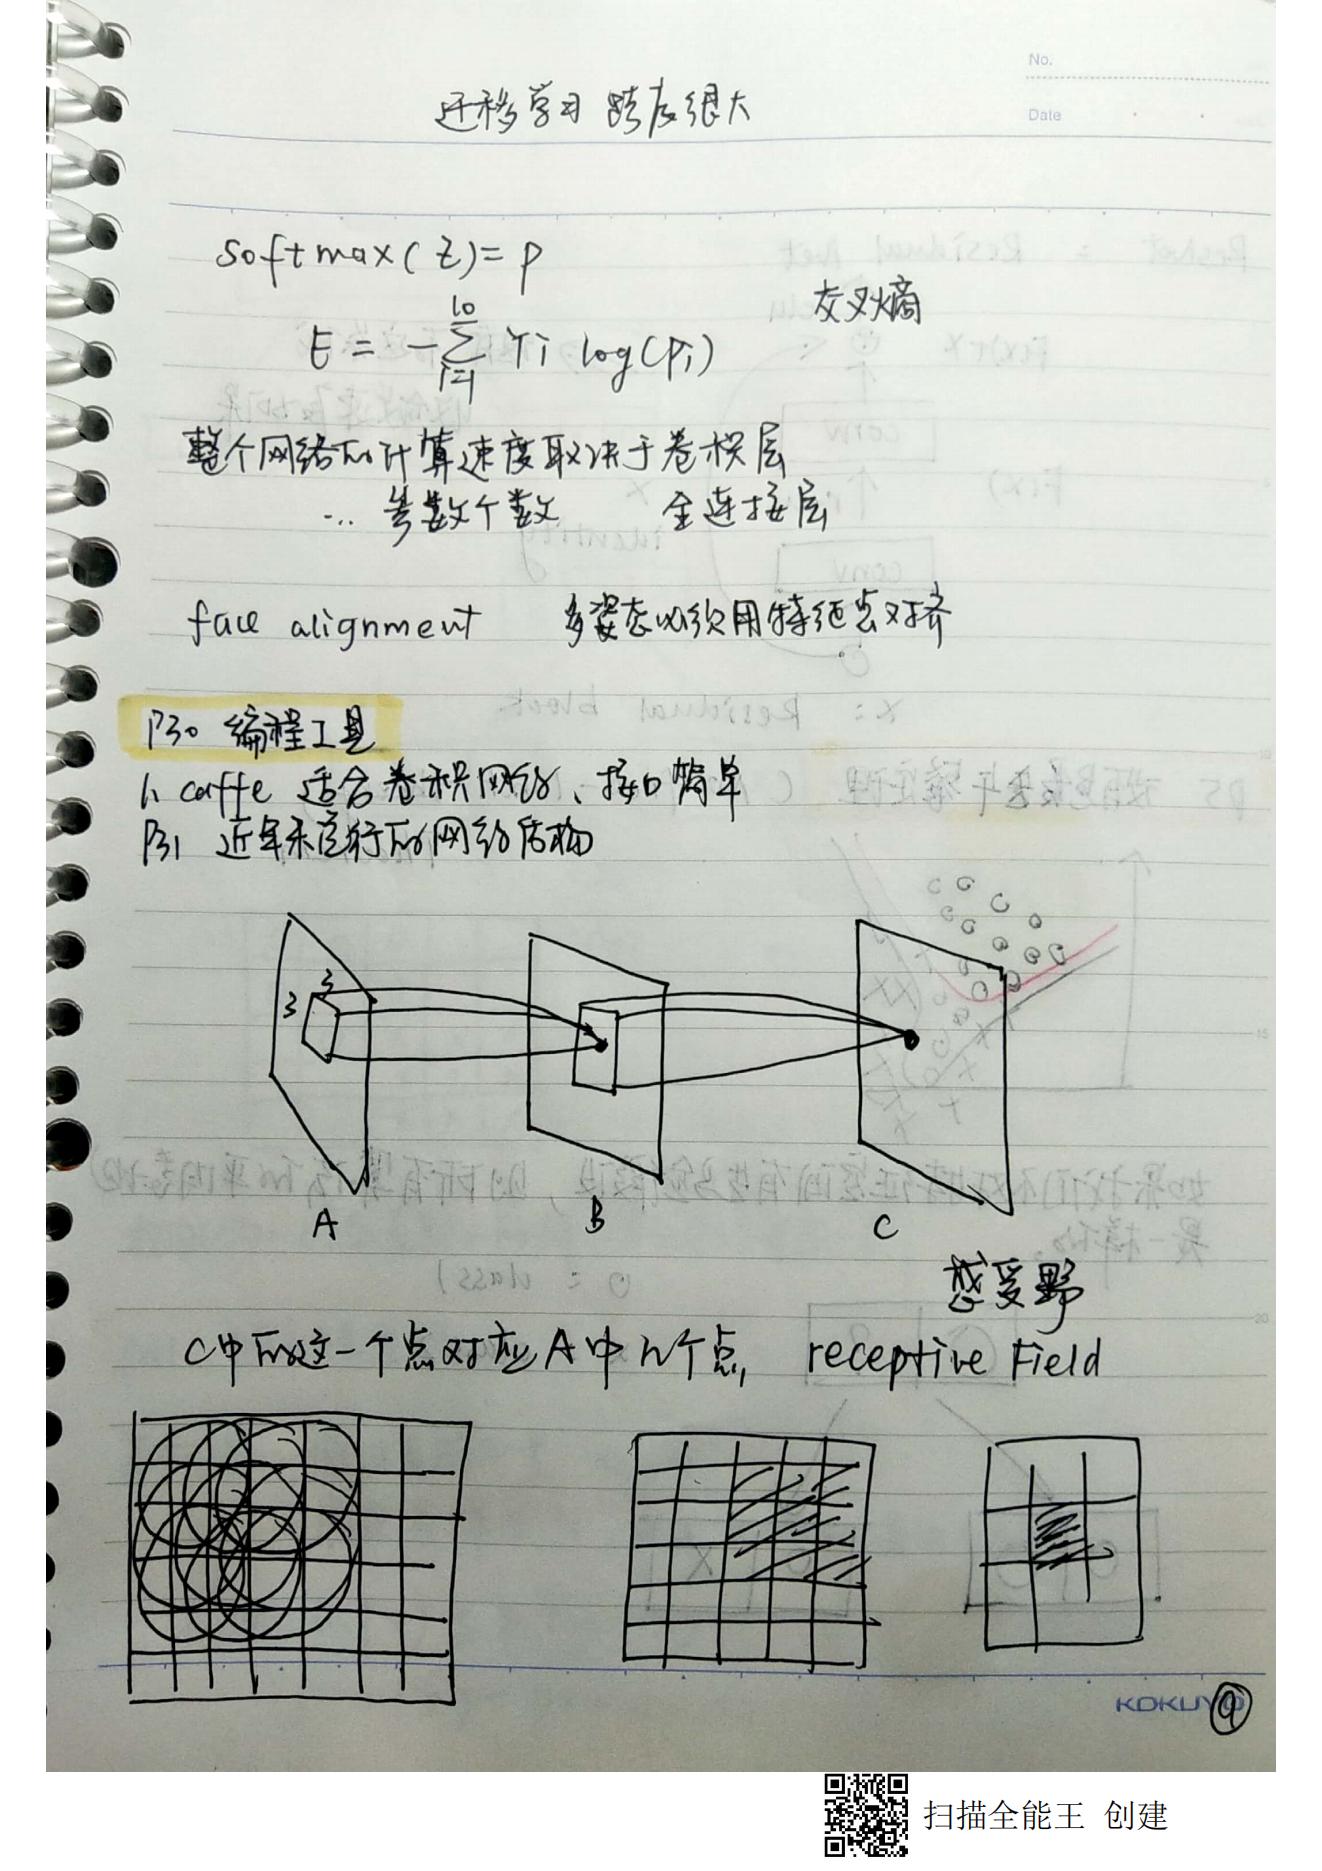 No.
Date
迁移学习 跨度很大
softmax(z)=p
交叉熵
E = -∑ Yi log(pi)
10
i=1
整个网络的计算速度取决于卷积层
... 参数个数 全连接层
face alignment 多姿态必须用特征点对齐
P30 编程工具
1、caffe 适合卷积网络、接口简单
P31 近年来流行的网络结构
3
3
A B C
感受野
C中的这一个点对应A中几个点, receptive Field
KOKUYO
9
扫描全能王 创建